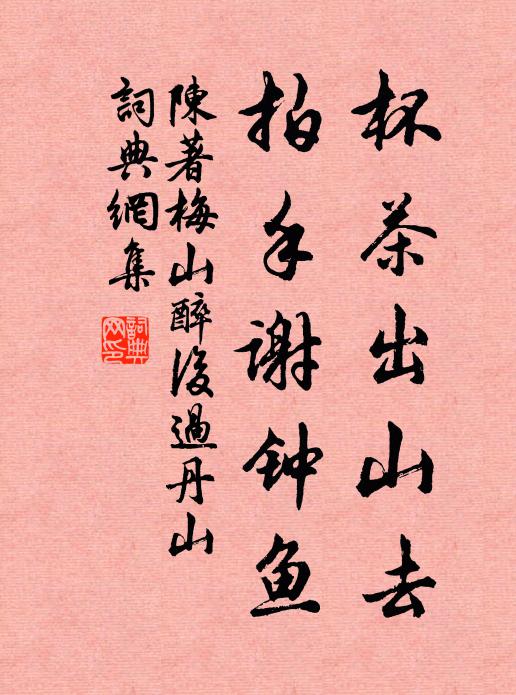 杯茶出山去
拍手谢钟鱼
陳著梅山醉後過丹山
詞典網集
詞典
网印